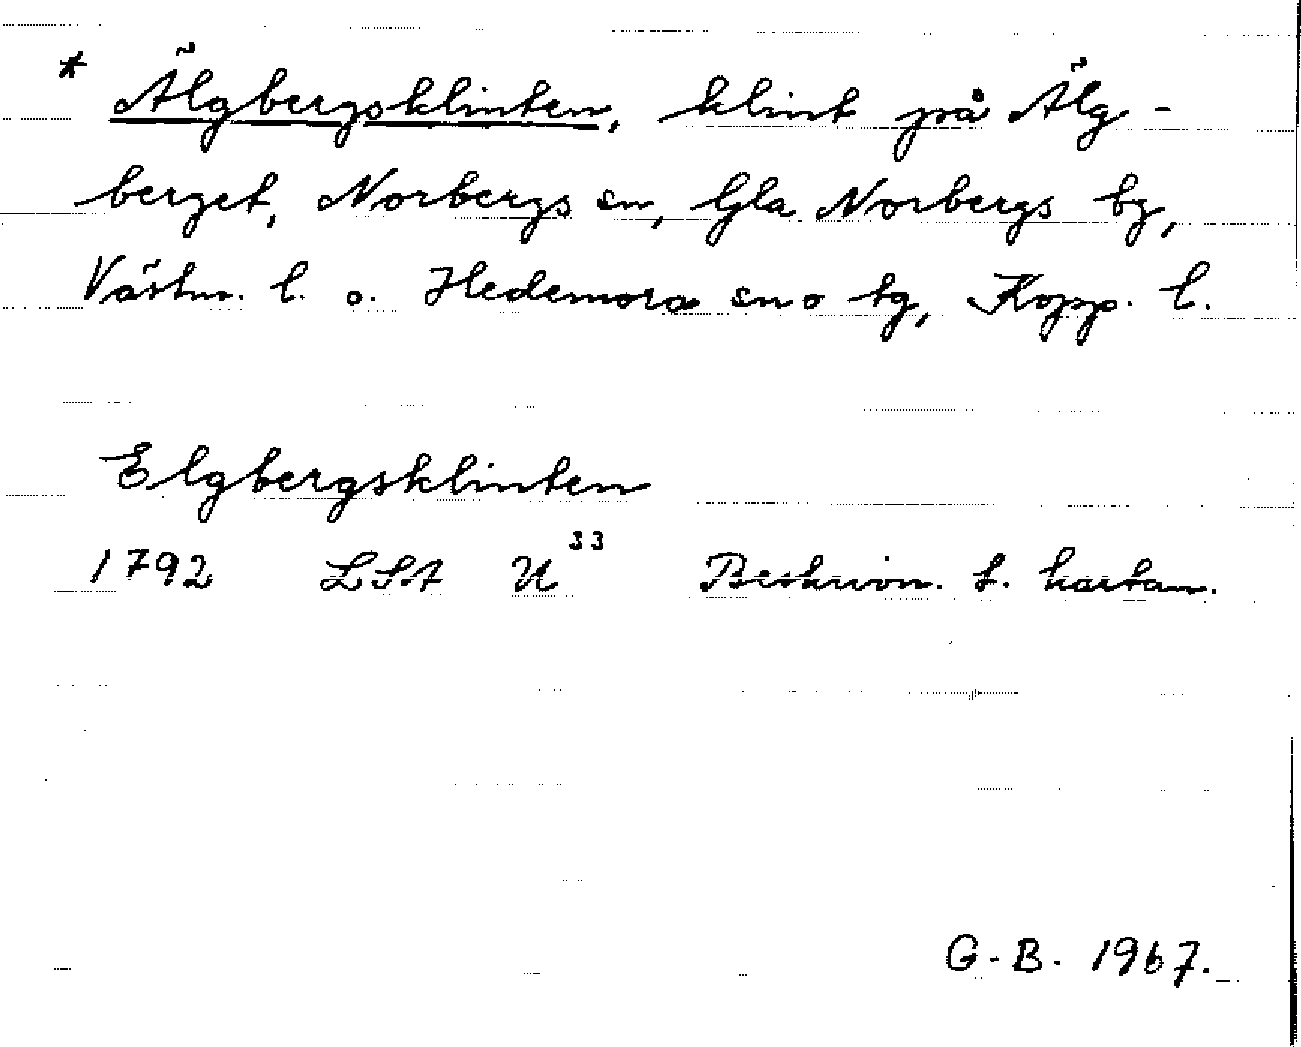 * Älgbergsklinten, klint på Älg-
berget, Norbergs sn, Gla Norbergs bg,
Västm. l. o. Hedemora sn o tg, Kopp. l.
Elgbergsklinten
1792 LSA U³³ Beskrivn. t. kartan.
G. B. 1967.